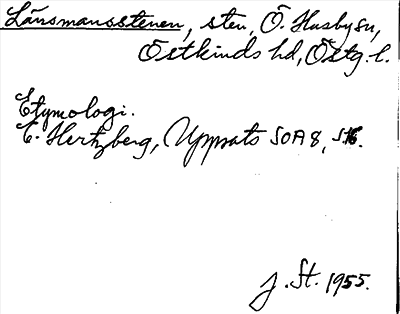 Länsmansstenen, sten, Ö. Husby sn,
Östkinds hd, Östg. l.
Etymologi.
E. Hertzberg, Uppsats SOA 8, s.
J. St. 1955.